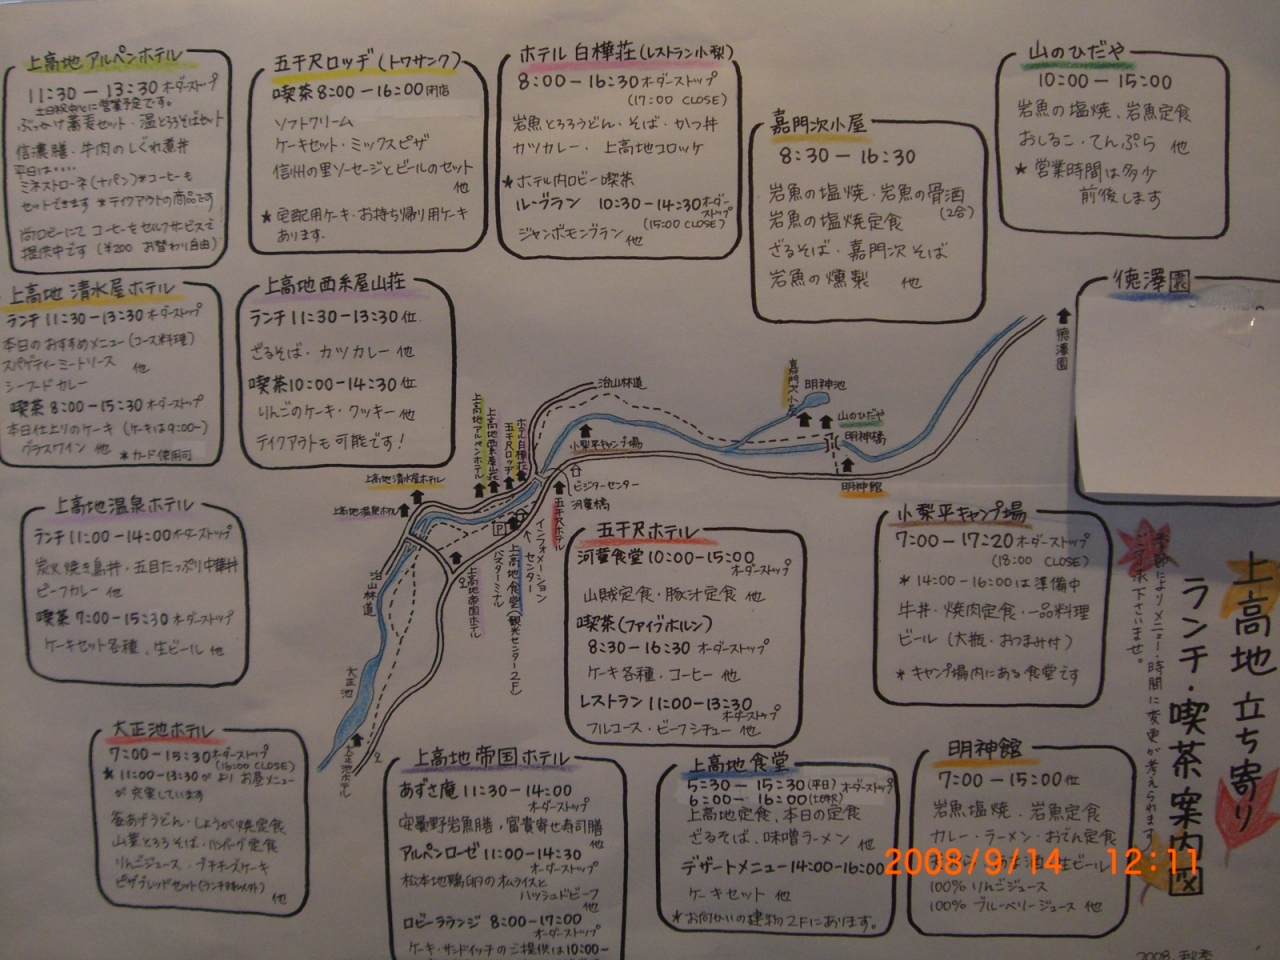 上高地アルペンホテル
11:30－13:30オーダーストップ
土日祝中心に営業予定です。
ぶっかけ蕎麦セット・温とろろそばセット
信濃膳・牛肉のしぐれ煮丼
平日は・・・・
ミネストローネ(ナパン)*コーヒーも
セットできます *テイクアウトの商品です
尚ロビーにて コーヒーをセルフサービスで
提供中です(¥200 お替わり自由)
五千尺ロッヂ(トワサンク)
喫茶 8:00－16:00閉店
ソフトクリーム
ケーキセット・ミックスピザ
信州の里ソーセージとビールのセット
他
★宅配用ケーキ・お持ち帰り用ケーキ
あります.
ホテル 白樺荘(レストラン小梨)
8:00－16:30オーダーストップ
(17:00 CLOSE)
岩魚とろろうどん・そば・かつ丼
カツカレー・上高地コロッケ
★ホテル内ロビー喫茶
ル・ブラン 10:30－14:30オーダーストップ
(15:00CLOSE)
ジャンボモンブラン他
嘉門次小屋
8:30－16:30
岩魚の塩焼・岩魚の骨酒
(2合)
岩魚の塩焼定食
ざるそば・嘉門次そば
岩魚の燻製 他
山のひだや
10:00－15:00
岩魚の塩焼、岩魚定食
おしるこ・てんぷら 他
★営業時間は多少
前後します
徳澤園
上高地 清水屋ホテル
ランチ11:30－13:30オーダーストップ
本日のおすすめメニュー(コース料理)
スパゲティーミートソース 他
シーフードカレー
喫茶8:00－15:30オーダーストップ
本日仕上りのケーキ(ケーキは9:00~)
グラスワイン 他 *カード使用可
上高地西糸屋山荘
ランチ11:30－13:30位
ざるそば・カツカレー他
喫茶10:00－14:30位
りんごのケーキ・クッキー他
テイクアウトも可能です!
上高地温泉ホテル
ランチ11:00－14:00オーダーストップ
炭火焼き鳥丼・五目たっぷり中華丼
ビーフカレー他
喫茶 7:00－15:30オーダーストップ
ケーキセット各種、生ビール他
治山林道
嘉門次小屋
明神池
山のひだや
明神橋
明神館
徳澤園
小梨平キャンプ場
ビジターセンター
河童橋
上高地アルペンホテル
上高地西糸屋山荘
五千尺ロッヂ
ホテル白樺荘
上高地清水屋ホテル
上高地温泉ホテル
五千尺ホテル
インフォメーションセンター
P
上高地食堂(観光センター2F)
バスターミナル
上高地帝国ホテル
治山林道
大正池
大正池ホテル
五千尺ホテル
河童食堂10:00－15:00
オーダーストップ
山賊定食・豚汁定食 他
喫茶(ファイブホルン)
8:30－16:30オーダーストップ
ケーキ各種・コーヒー 他
レストラン11:00－13:30
オーダーストップ
フルコース・ビーフシチュー他
小梨平キャンプ場
7:00－17:20オーダーストップ
(18:00 CLOSE)
*14:00－16:00は準備中
牛丼・焼肉定食・一品料理
ビール(大瓶・おつまみ付)
*キャンプ場内にある食堂です
上高地 立ち寄り
ランチ・喫茶案内図
季節によりメニュー・時間に変更が考えられます
ご了承下さいませ。
大正池ホテル
7:00－15:30オーダーストップ
(16:00 CLOSE)
*11:00－13:30がよりお昼メニュー
が充実しています
釜あげうどん・しょうが焼定食
山菜とろろそば・ハンバーグ定食
りんごジュース・プチチーズケーキ
ピザブレッドセット(ランチ時以外)
他
上高地帝国ホテル
あずさ庵11:30－14:00
オーダーストップ
安曇野岩魚膳、富貴寄せ寿司膳
他
アルペンローゼ11:00－14:30
オーダーストップ
松本地鶏卵のオムライスと
ハッシュドビーフ
他
ロビーラウンジ 8:00－17:00
オーダーストップ
ケーキ・サンドイッチのご提供は10:00－
上高地食堂
5:30－15:30(平日)オーダーストップ
6:00－16:00(土日祝)
上高地定食、本日の定食
ざるそば、味噌ラーメン 他
デザートメニュー14:00-16:00
ケーキセット 他
*お向かいの建物2Fにあります。
明神館
7:00－15:00位
岩魚塩焼、岩魚定食
カレー・ラーメン・おでん定食
生ビール
100%りんごジュース
100%ブルーベリージュース 他
2008/9/14 12:11
2008.